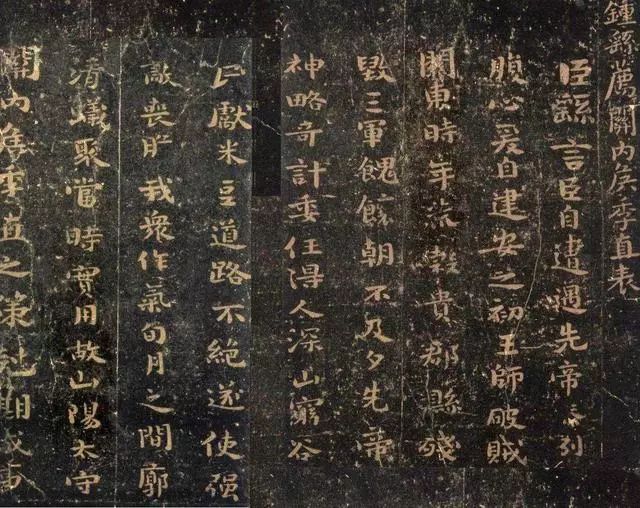 鍾繇薦關内侯季直表
臣繇言臣自遭遇先帝忝列
腹心爰自建安之初王師破賊
關東時年荒穀貴郡縣殘
毀三軍餽饟朝不及夕先帝
神略奇計委任得人深山窮谷
民獻米豆道路不絕遂使强
敵喪膽我衆作氣旬月之間廓
清蟻聚當時實用故山陽太守
關内侯季直之策尅期成事